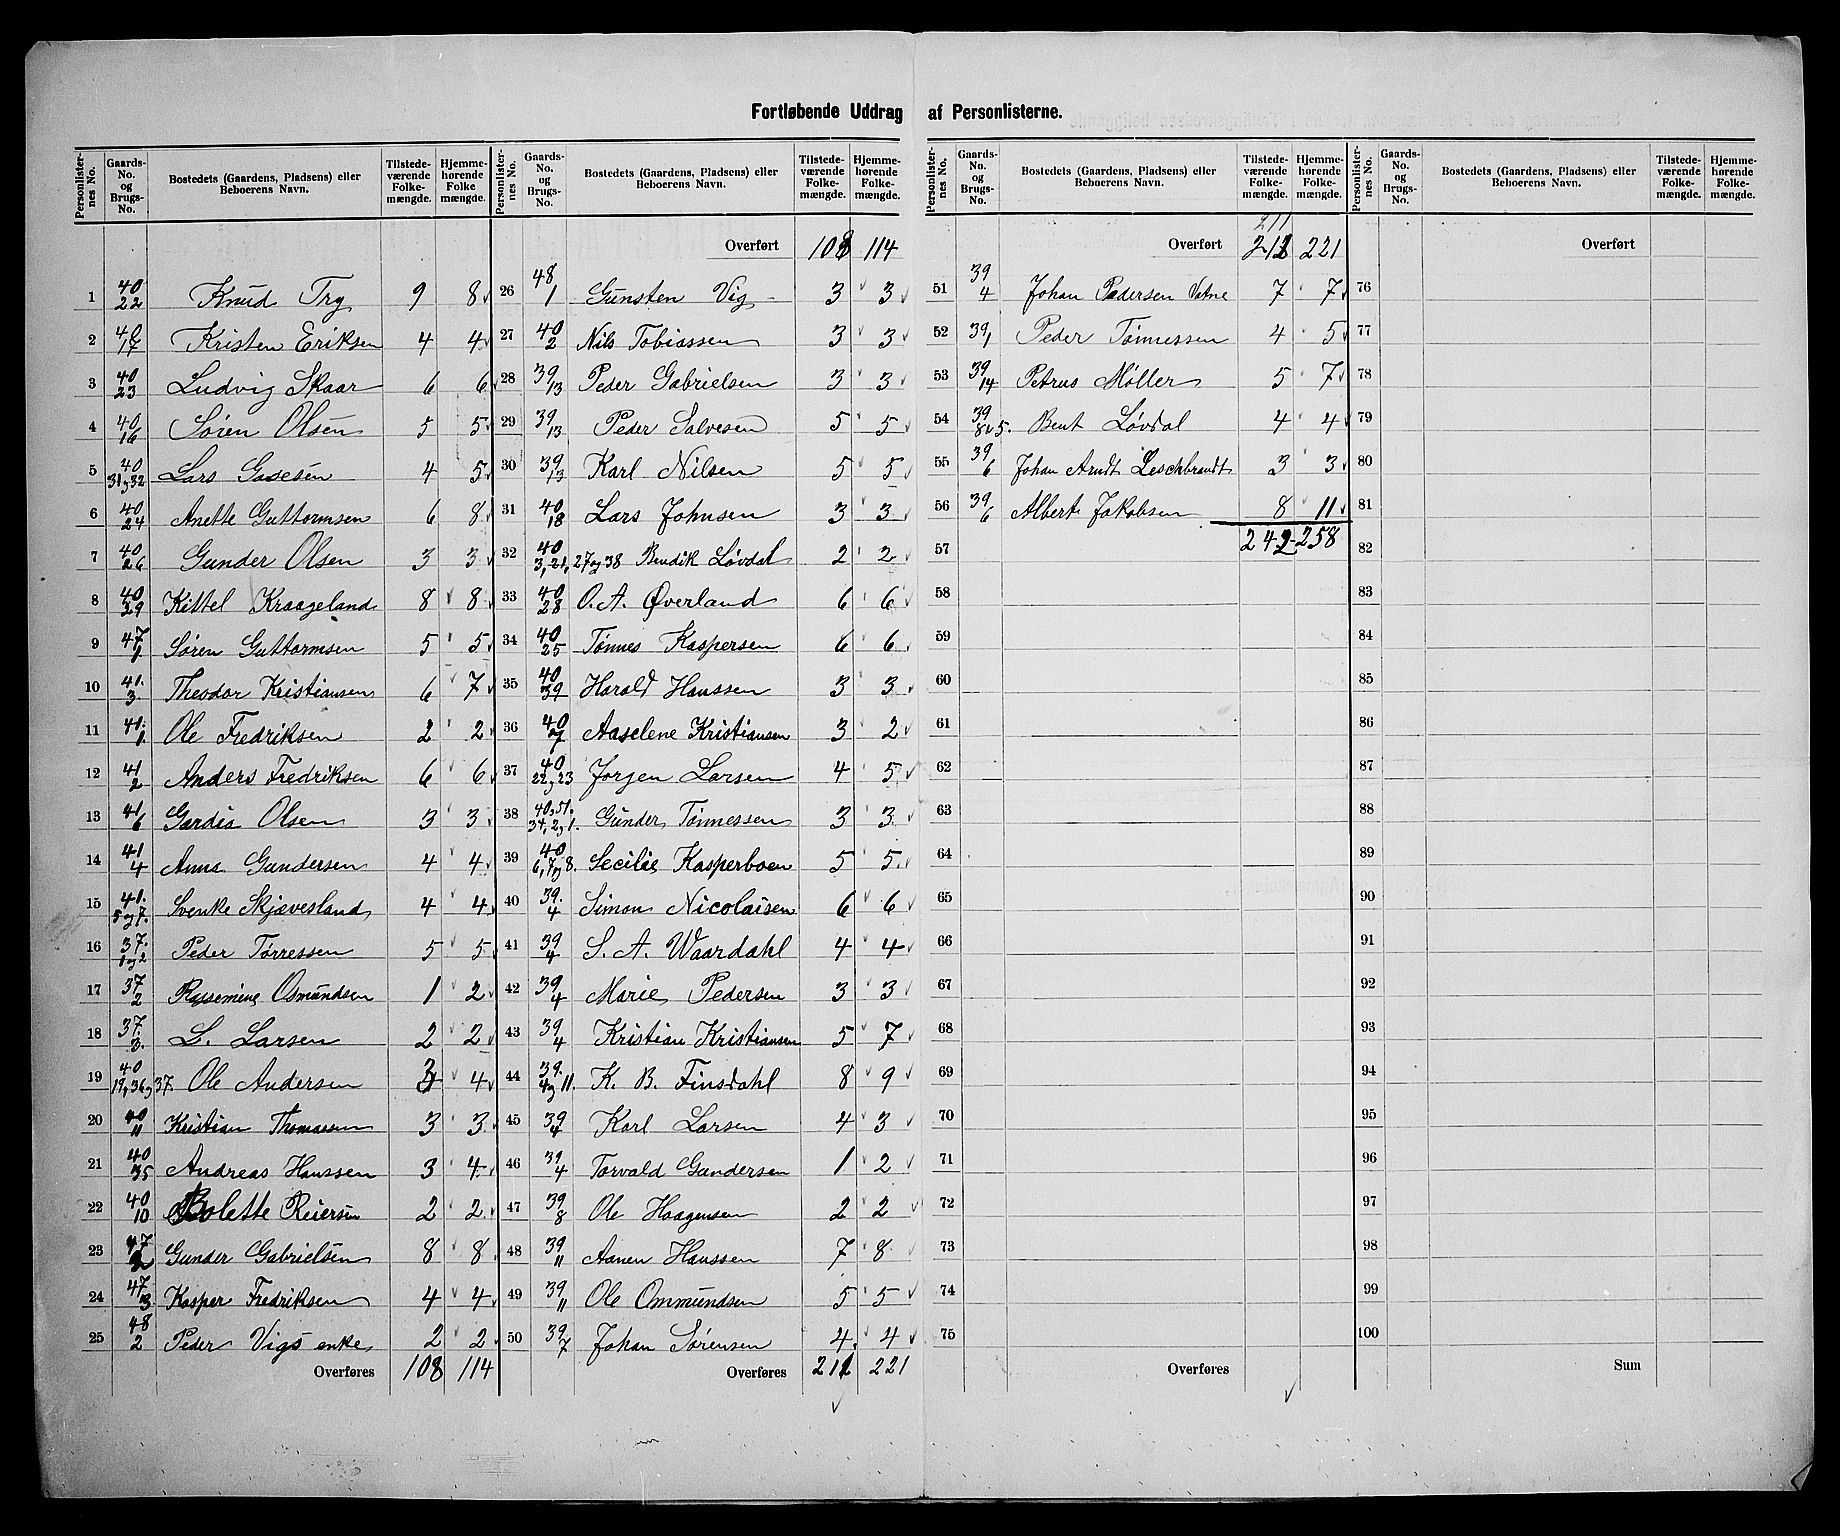 Fortløbende Uddrag af Personlisterne.
Personlister-nes No. | Gaards-No. og Brugs-No. | Bostedets (Gaardens, Pladsens) eller Beboerens Navn. | Tilstede-værende Folke-mængde. | Hjemme-hørende Folke mængde.
1 40/22 Knud Try 9 8
2 40/17 Kristen Eriksen 4 4
3 40/23 Ludvig Skaar 6 6
4 40/16 Søren Olsen 5 5
5 40/31 og 32 Lars Gasesen 4 5
6 40/24 Anette Guttormsen 6 8
7 40/26 Gunder Olsen 3 3
8 40/29 Kittel Kraageland 8 8
9 47/1 Søren Guttormsen 5 5
10 41/3 Theodor Kristiansen 6 7
11 41/1 Ole Fredriksen 2 2
12 41/2 Anders Fredriksen 6 6
13 41/6 Gardia Olsen 3 3
14 41/4 Anna Gundersen 4 4
15 41/5 og 7 Svenke Skjævesland 4 4
16 37/1 og 2 Peder Tørressen 5 5
17 37/2 Rasemine Osmundsen 1 2
18 37/3 L. Larsen 2 2
19 40/19, 36 og 37 Ole Andersen 3 4
20 40/11 Kristian Thomassen 3 3
21 40/35 Andreas Hanssen 3 4
22 40/10 Bolette Reiersen 2 2
23 47/2 Gunder Gabrielsen 8 8
24 47/3 Kasper Fredriksen 4 4
25 48/2 Peder Vigs enke 2 2
Overføres 108 114
Personlister-nes No. | Gaards-No. og Brugs-No. | Bostedets (Gaardens, Pladsens) eller Beboerens Navn. | Tilstede-værende Folke-mængde. | Hjemme-hørende Folke-mængde.
Overført 108 114
26 48/1 Gunsten Vig 3 3
27 40/2 Nils Tobiassen 3 3
28 39/13 Peder Gabrielsen 3 3
29 39/13 Peder Salvesen 5 5
30 39/13 Karl Nilsen 5 5
31 40/18 Lars Johnsen 3 3
32 40/3, 21, 27 og 38 Bendik Løvdal 2 2
33 40/28 O. A. Øverland 6 6
34 40/25 Tønnes Kaspersen 6 6
35 40/39 Harald Hanssen 3 3
36 40/7 Aaselene Kristiansen 3 2
37 40/22 og 23 Jørgen Larsen 4 5
38 40 og 51/34, 2 og 1. Gunder Tønnessen 3 3
39 40/6, 7 og 8. Secilie Kasperboen 5 5
40 39/4 Simon Nicolaisen 6 6
41 39/4 S. A. Waardahl 4 4
42 39/4 Marie Pedersen 3 3
43 39/4 Kristian Kristiansen 5 7
44 39/4 og 11. K. B. Finsdahl 8 9
45 39/4 Karl Larsen 4 3
46 39/4 Torvald Gundersen 1 2
47 39/8 Ole Haagensen 2 2
48 39/11 Aanen Hanssen 7 8
49 39/11 Ole Ommundsen 5 5
50 39/7 Johan Sørensen 4 4
Overføres 211 221
Personlister-nes No. | Gaards-No. og Brugs-No. | Bostedets (Gaardens, Pladsens) eller Beboerens Navn. | Tilstede-værende Folke-mængde. | Hjemme-hørende Folke-mængde.
211
Overført 212 221
51 39/4 Johan Pedersen Vatne 7 7
52 39/1 Peder Tønnessen 4 5
53 39/14 Petrus Møller 5 7
54 39/8 & 5. Bent Løvdal 4 4
55 39/6 Johan Arndt Leschbrandt 3 3
56 39/6 Albert Jakobsen 8 11
57 242 258
58
59
60
61
62
63
64
65
66
67
68
69
70
71
72
73
74
75
Overføres
Personlister-nes No. | Gaards-No. og Brugs-No. | Bostedets (Gaardens, Pladsens) eller Beboerens Navn. | Tilstede-værende Folke-mængde. | Hjemme-hørende Folke-mængde.
Overført
76
77
78
79
80
81
82
83
84
85
86
87
88
89
90
91
92
93
94
95
96
97
98
99
100
Sum